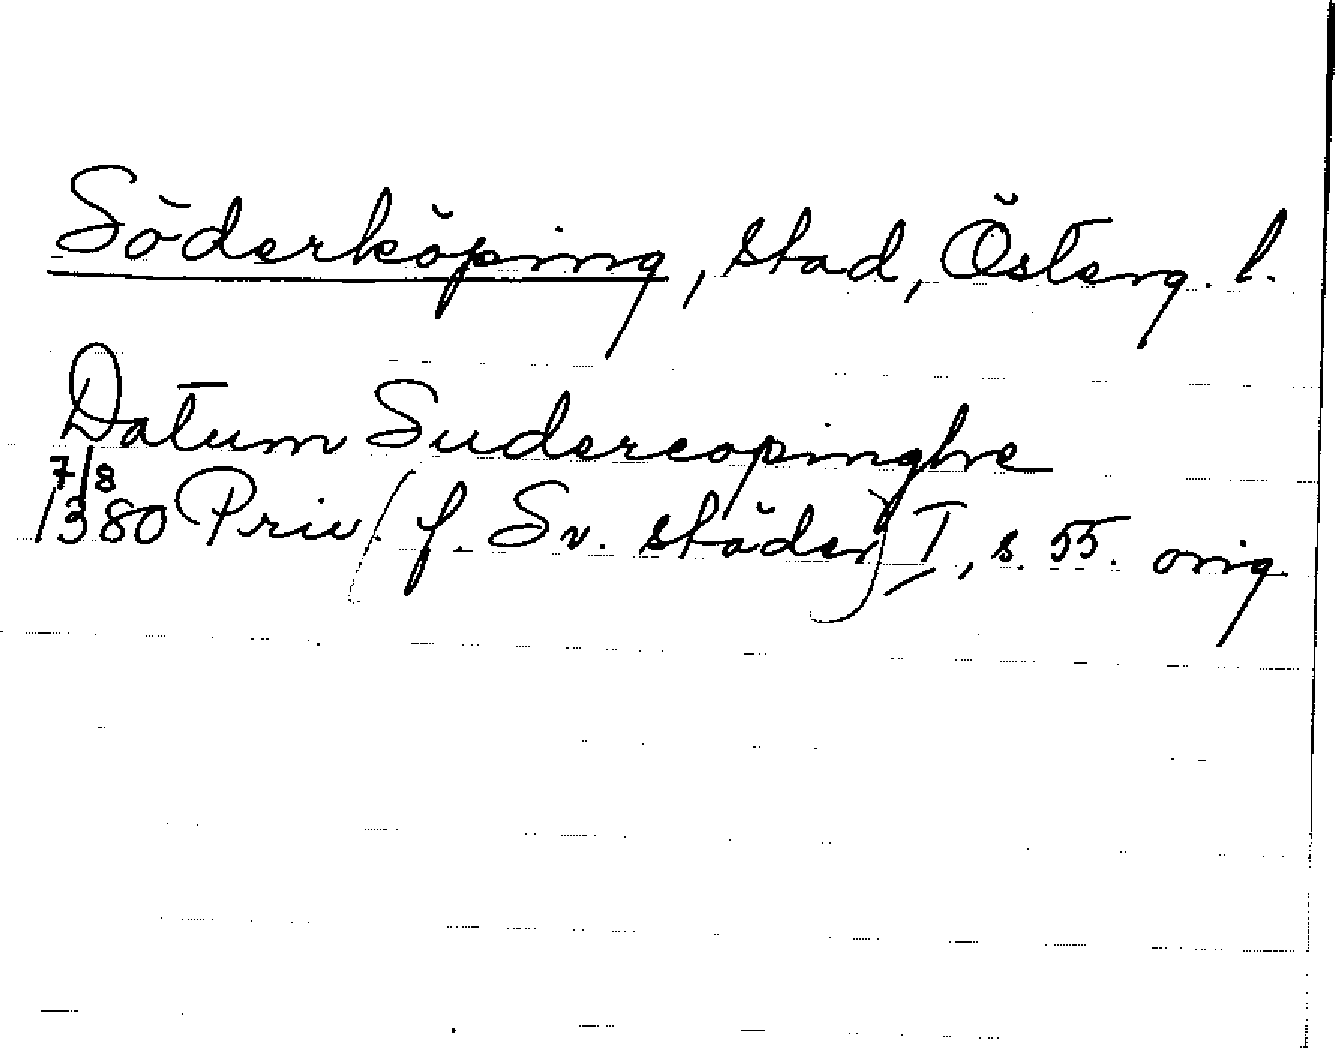 Söderköping, stad, Österg. l.
Datum Sudercopinghe
7/8 1380 Priv. (f. Sv. städer) I, s. 55. orig